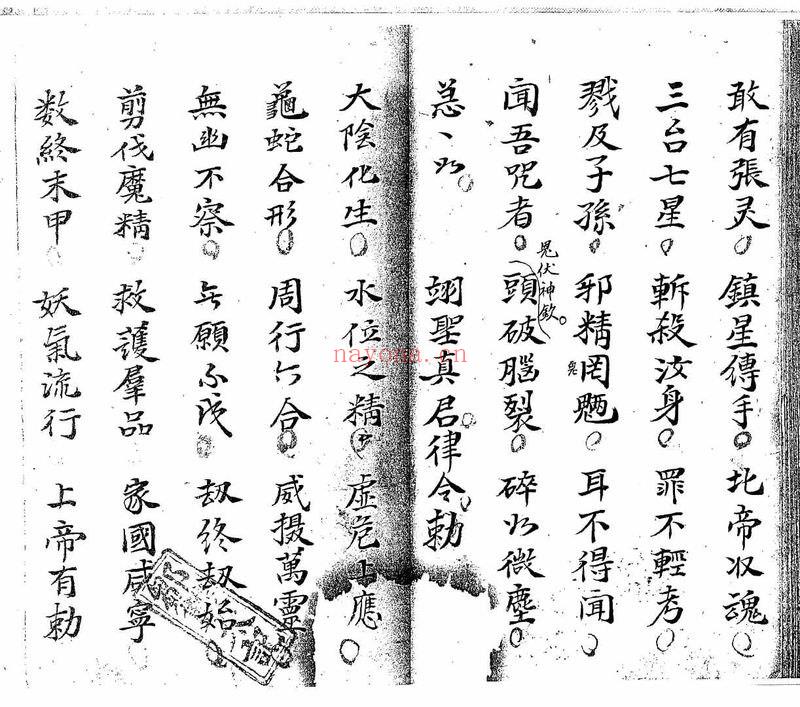 敢有張灵 鎮星傳手 北帝収魂
三台七星 斬殺汝身 罪不輕考
戮及子孫 邪精罔魎 耳不得聞
鬼
聞吾咒者 頭破腦裂 碎如微塵
鬼伏神欽
急丶如 翊聖真君律令勅
大陰化生 水位之精 虛危上應
龜蛇合形 周行六合 威摄萬靈
無幽不察 无願不成 劫終劫始
剪伐魔精 救護羣品 家國咸寧
数終末甲 妖氣流行 上帝有勅
nayona.cn